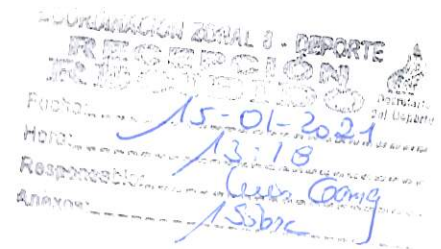 COORDINACION ZONAL 8 - DEPORTE
RECEPCIÓN
RECIBIDO
Secretaría
del Deporte
Fecha: 15-01-2021
Hora: 13:18
Responsable:
Anexos: 1 Sobre